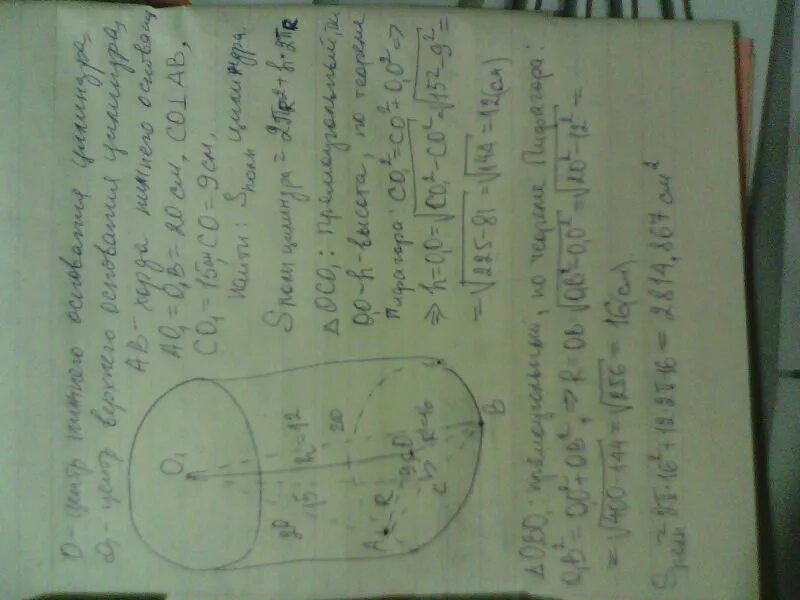 O - центр нижнего основания цилиндра
O₁ - центр верхнего основания цилиндра,
AB - хорда нижнего основания
AO₁ = O₁B = 20 см, CO ⊥ AB,
CO₁ = 15 см, CO = 9 см.
Найти: Sполн цилиндра.
Sполн цилиндра = 2πR² + h·2πR
△OCO₁: прямоугольный,
O₁O - h - высота, по теореме
Пифагора: CO₁² = CO² + O₁O² ⇒
⇒ h = O₁O = √CO₁² - CO² = √15² - 9² =
= √225-81 = √144 = 12 (см)
O₁
20
15
h=12
20
A
R
9
O
C
R=16
B
△OBO₁: прямоугольный, по теореме Пифагора:
O₁B² = O₁O² + OB², ⇒ R = OB = √O₁B² - O₁O² = √20² - 12² =
= √400-144 = √256 = 16 (см).
Sполн = 2π·16² + 12·2π·16 = 2814,867 см²